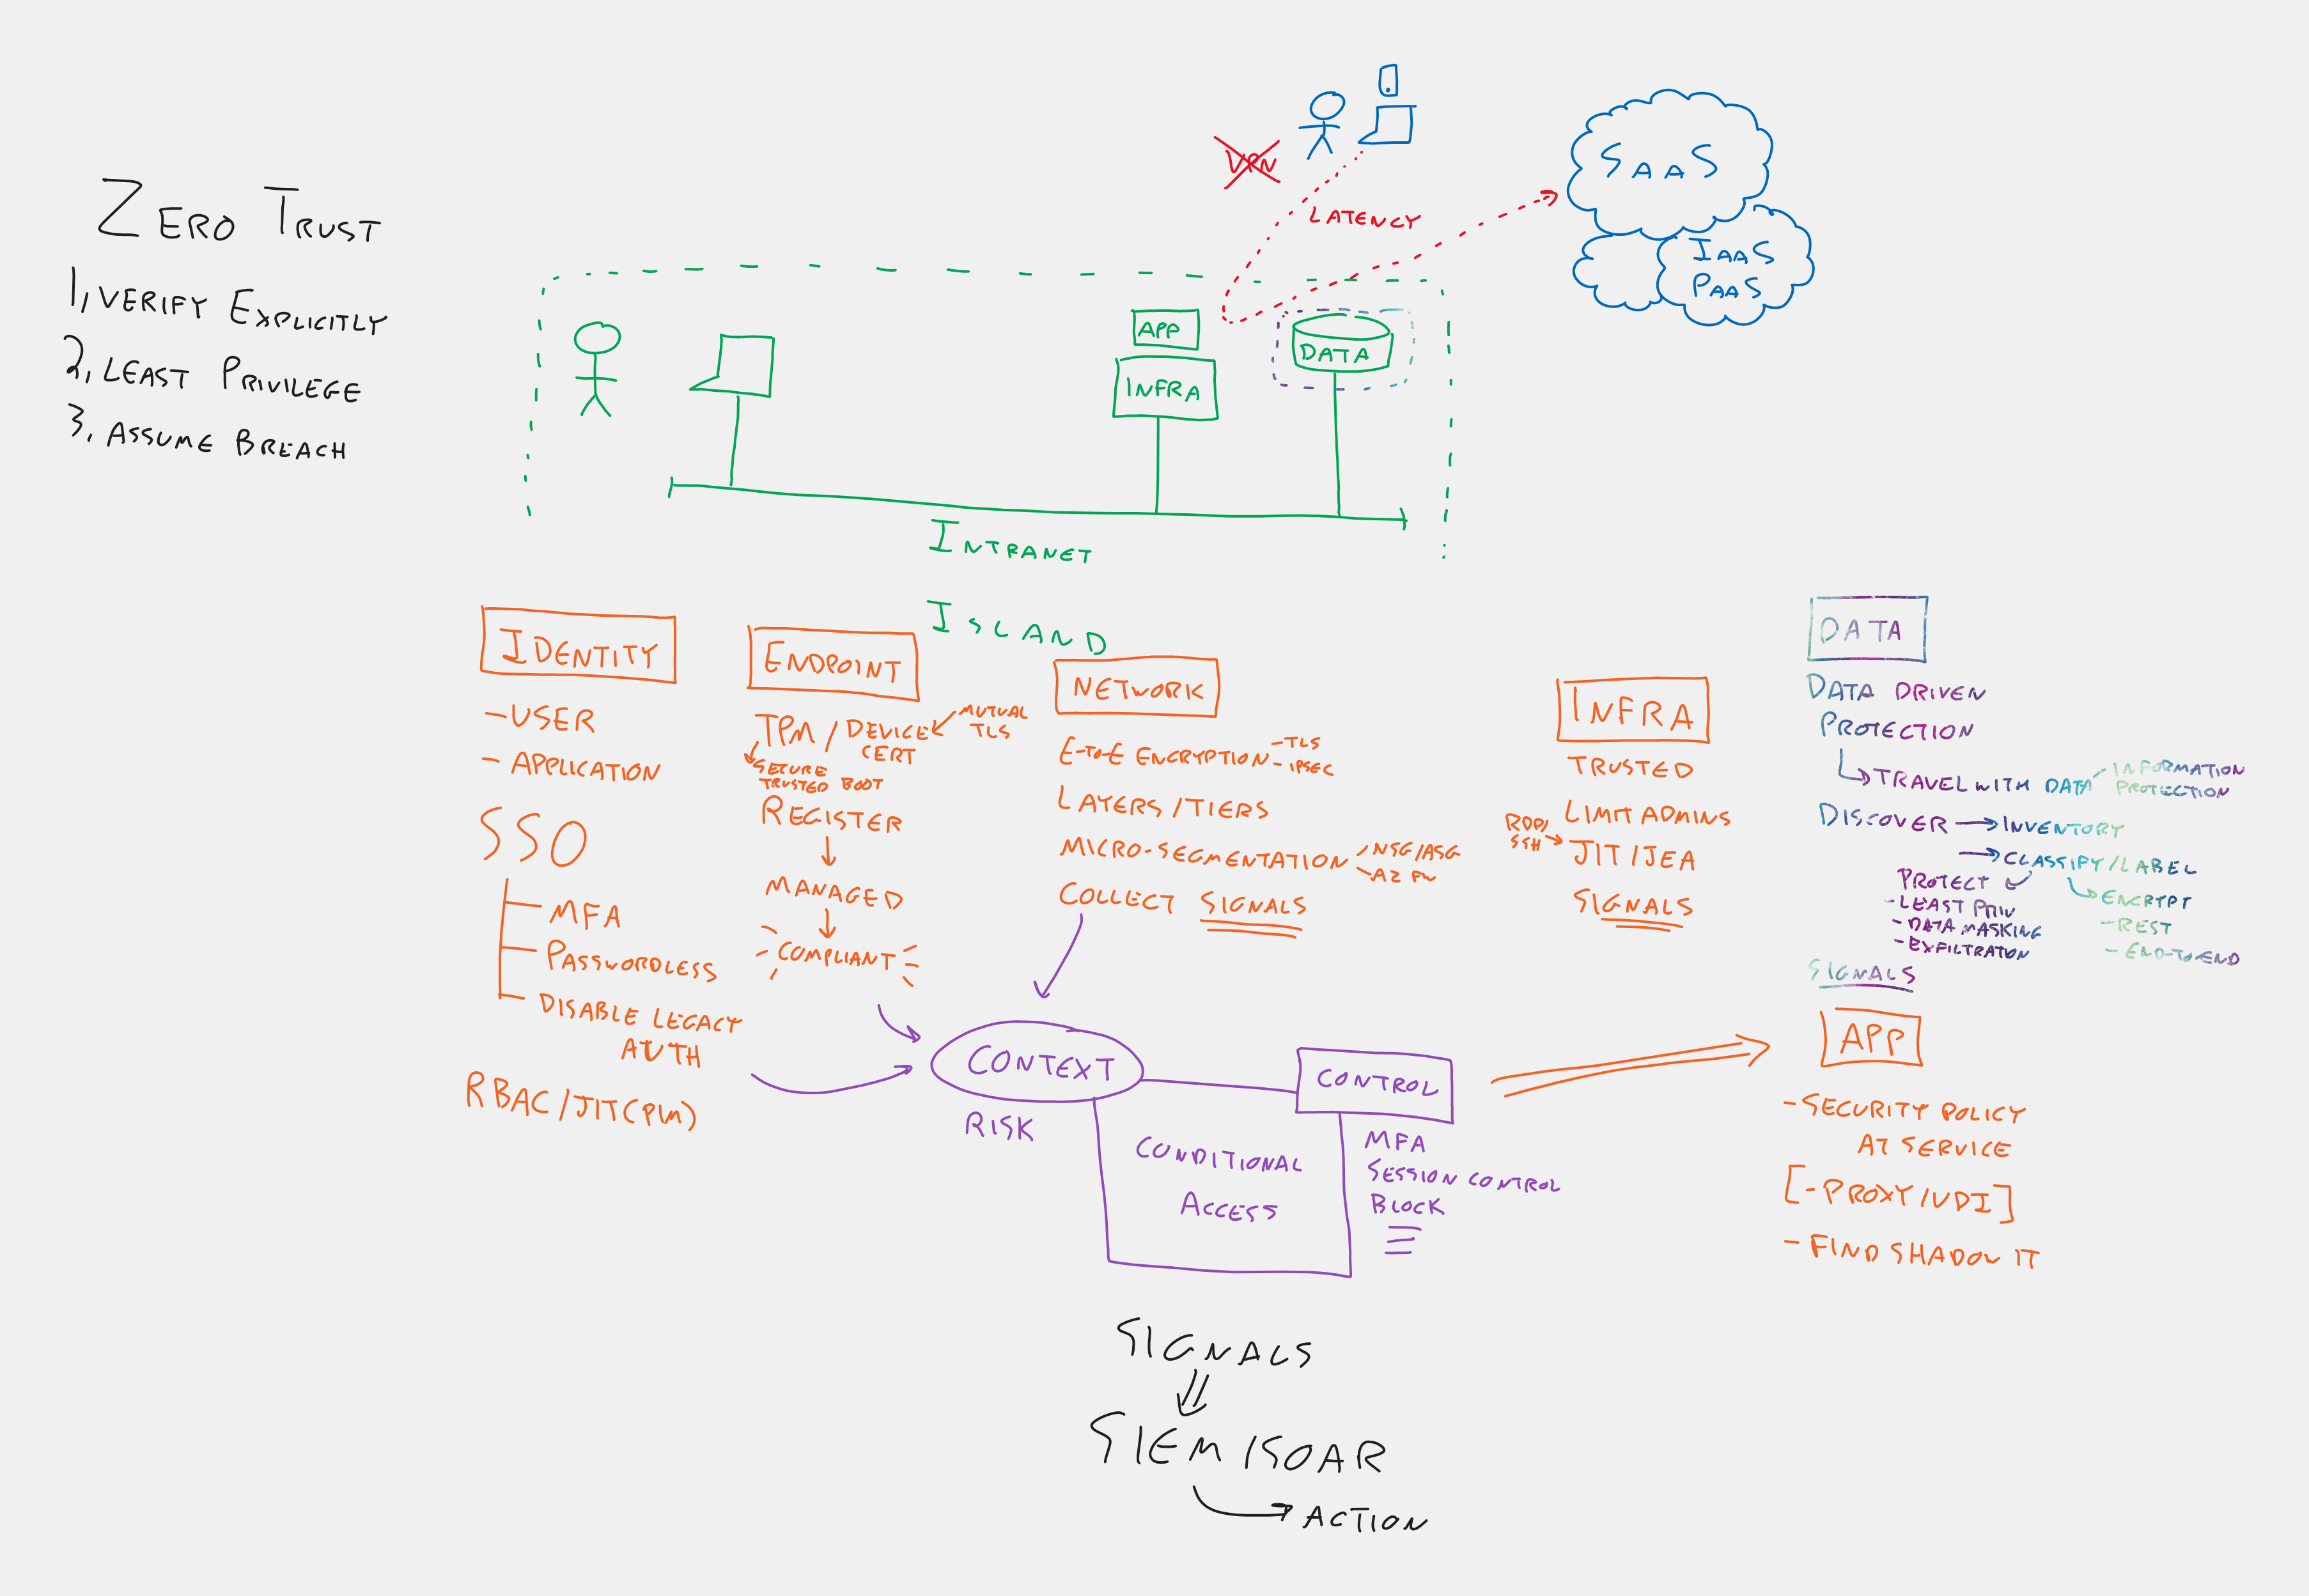 ZERO TRUST
1, VERIFY EXPLICITLY
2, LEAST PRIVILEGE
3, ASSUME BREACH
VPN
LATENCY
SAAS
IAAS
PAAS
APP
INFRA
DATA
INTRANET
ISLAND
IDENTITY
- USER
- APPLICATION
SSO
MFA
PASSWORDLESS
DISABLE LEGACY
AUTH
RBAC/JIT(PIM)
ENDPOINT
TPM/DEVICE
CERT
MUTUAL
TLS
SECURE
TRUSTED BOOT
REGISTER
MANAGED
COMPLIANT
NETWORK
E-TO-E ENCRYPTION
- TLS
- IPSEC
LAYERS/TIERS
MICRO-SEGMENTATION
NSG/ASG
AZ FW
COLLECT SIGNALS
CONTEXT
RISK
CONTROL
CONDITIONAL
ACCESS
MFA
SESSION CONTROL
BLOCK
INFRA
TRUSTED
LIMIT ADMINS
RDP/
SSH
JIT/JEA
SIGNALS
DATA
DATA DRIVEN
PROTECTION
TRAVEL WITH DATA
INFORMATION
PROTECTION
DISCOVER
INVENTORY
CLASSIFY/LABEL
PROTECT
- LEAST PRIV
- DATA MASKING
- EXFILTRATION
ENCRYPT
- REST
- END-TO-END
SIGNALS
APP
- SECURITY POLICY
AT SERVICE
[- PROXY/VDI]
- FIND SHADOW IT
SIGNALS
SIEM/SOAR
ACTION